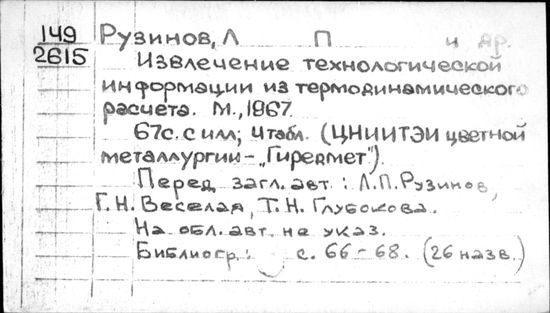 149
2615
Рузинов, Л П и др.
Извлечение технологической
информации из термодинамического
расчета. М., 1967.
67с. с илл; 4 табл. (ЦНИИТЭИ цветной
металлургии - „Гиредмет").
Перед загл. авт.: Л.П.Рузинов,
Г.Н.Веселая, Т.Н.Глубокова.
На обл. авт. не указ.
Библиогр.: с. 66-68. (26 назв.)